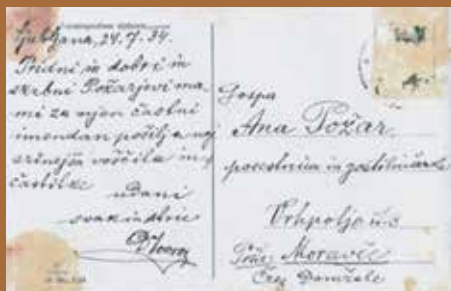 Ljubljana, 24.7.34.
Pridni in dobri in
skrbni Požarjevi ma-
mi za njen častni
imendan pošilja naj
srčnejša voščila in
častitke
udani
svak in stric
Gospa
Ana Požar
posestnica in gostilničarka
Vrhpolje
Moravče
Čez Domžale